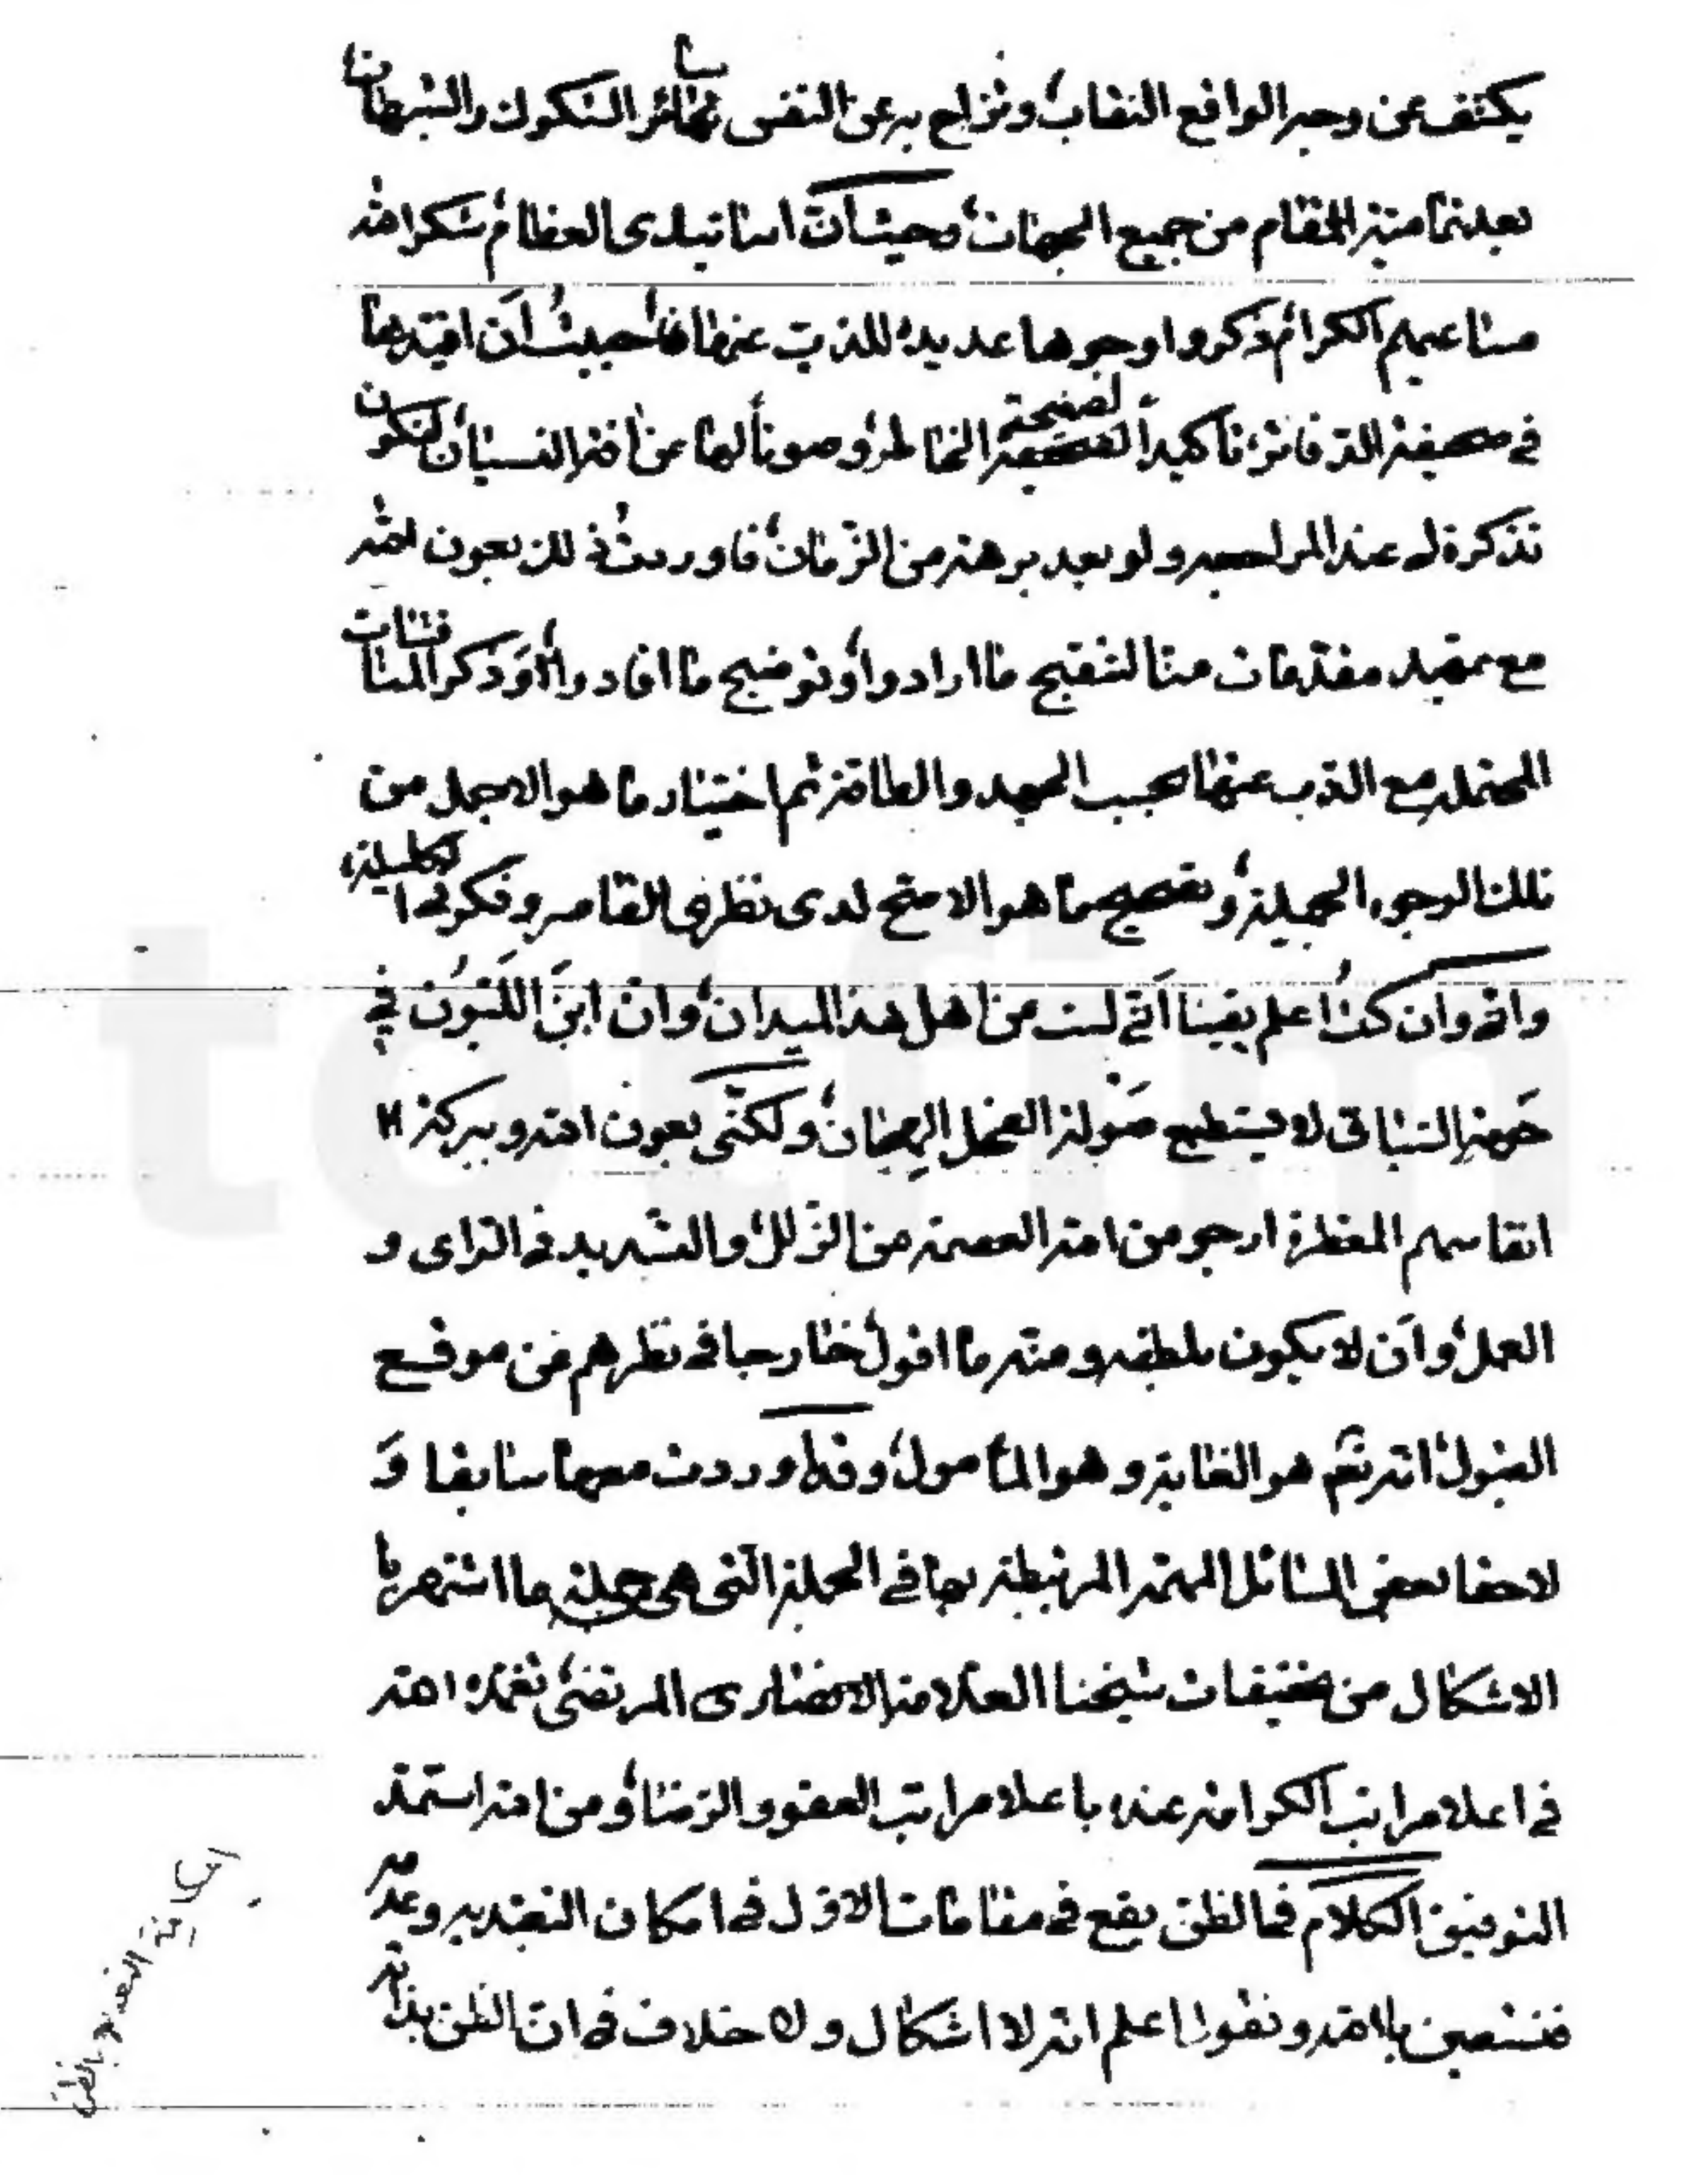 يكشف عن وجه الواقع النقاب، وتزاح به عن النفس سائر الشكوك والشبهات،
بعد تمامية المقام من جميع الجهات، وحيث ان اساتيدى العظام شكر الله
مساعيهم الكرام ذكروا وجوها عديدة للذب عنها فأحببتُ أن اقيدها
فى صحيفة الدفاتر، تأكيداً لصفيحة الخاطر، وصوناً لها عن افة النسيان، لتكون
تذكرة لى عند المراجعه ولو بعد برهة من الزمان، فاوردتُ ذلك بعون الله
مع تمهيد مقدمات منا لتنقيح ما ارادوا، وتوضيح ما افادوا، وذكر المناقشات
المحتملة مع الذب عنها بحسب الجهد والطاقة ثم اختيار ما هو الاجمل من
تلك الوجوه الجميلة، وتصحيح ما هو الاصح لدى نظرى القاصر وفكرتى الكليلة،
وانى وان كنتُ اعلم يقينا أنى لست من اهل هذا الميدان، وان ابنَ اللَبُون في
حَومة السباق لا يستطيع صَولة الفحل الهجان، ولكنّى بعون الله وببركة
انفاسهم المعطرة ارجو من الله العصمة من الزلل، والتسديد فى الراى و
العمل، وأن لا يكون بلطفه ومنه ما اقول خارجا فى نظرهم عن موقع
القبول، انه نعم هو الغاية وهو المأمول، وقد اوردت معها سابقا وَ
لاحقا بعض المسائل المهمة المرتبطة بها فى الجملة التى هى جملة ما اشتهر با
الاشكال من تحقيقات شيخنا العلامة الانصارى المرتضى تغمده الله
فى اعلا مراتب الكرامة عنده باعلا مراتب العفو والرضا، ومن الله استمد
التوفيق الكلام فى الظن يقع فى مقامات الاول فى امكان التعبد به وعدمه
فنستعين بالله ونقول اعلم انه لا اشكال ولا خلاف فى ان الظن بذاته
امكانية التعبد بالظن